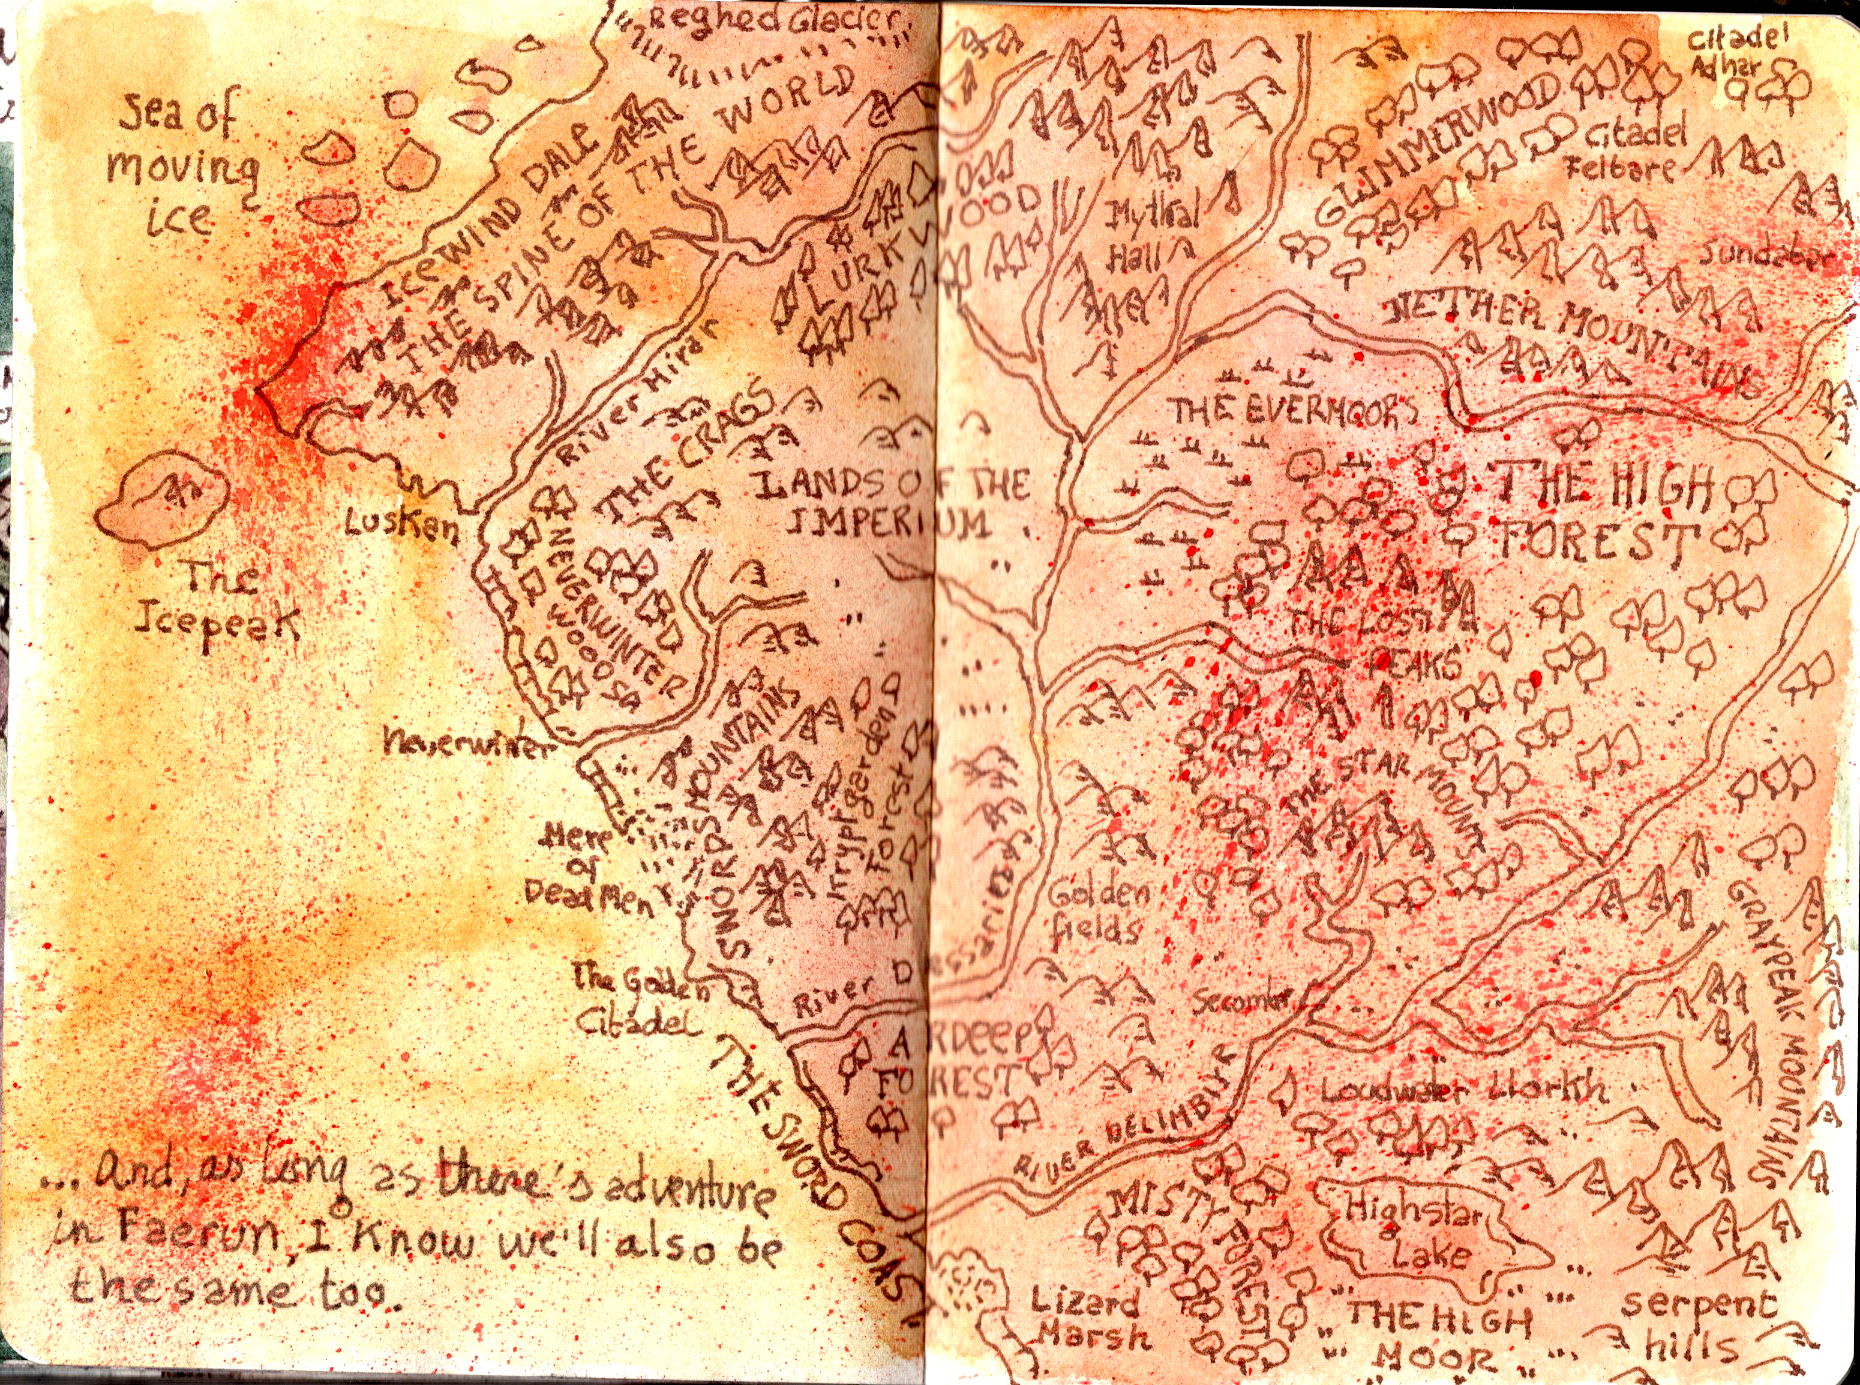 Reghed Glacier.
Sea of
moving
ice
ICEWIND DALE
THE SPINE OF THE WORLD
LURKWOOD
River Mirar
THE CRAGS
Luskan
The
Icepeak
LANDS OF THE
IMPERIUM
NEVERWINTER
WOOD
Neverwinter
SWORDS MOUNTAINS
Forest
Mere
of
Dead Men
The Golden
Citadel
River D
ARDEEP
FOREST
THE SWORD COAST
... And, as long as there's adventure
in Faerun, I know we'll also be
the same too.
Citadel
Adbar
GLIMMERWOOD
Citadel
Felbare
Mythral
Hall
Sundabar
NETHER MOUNTAINS
THE EVERMOORS
THE HIGH
FOREST
THE LOST
PEAKS
THE STAR MOUNT
Golden
fields
Secomber
GRAYPEAK MOUNTAINS
RIVER DELIMBIYR
Loudwater Llorkh
MISTY FOREST
Highstar
Lake
Lizard
Marsh
THE HIGH
MOOR
serpent
hills